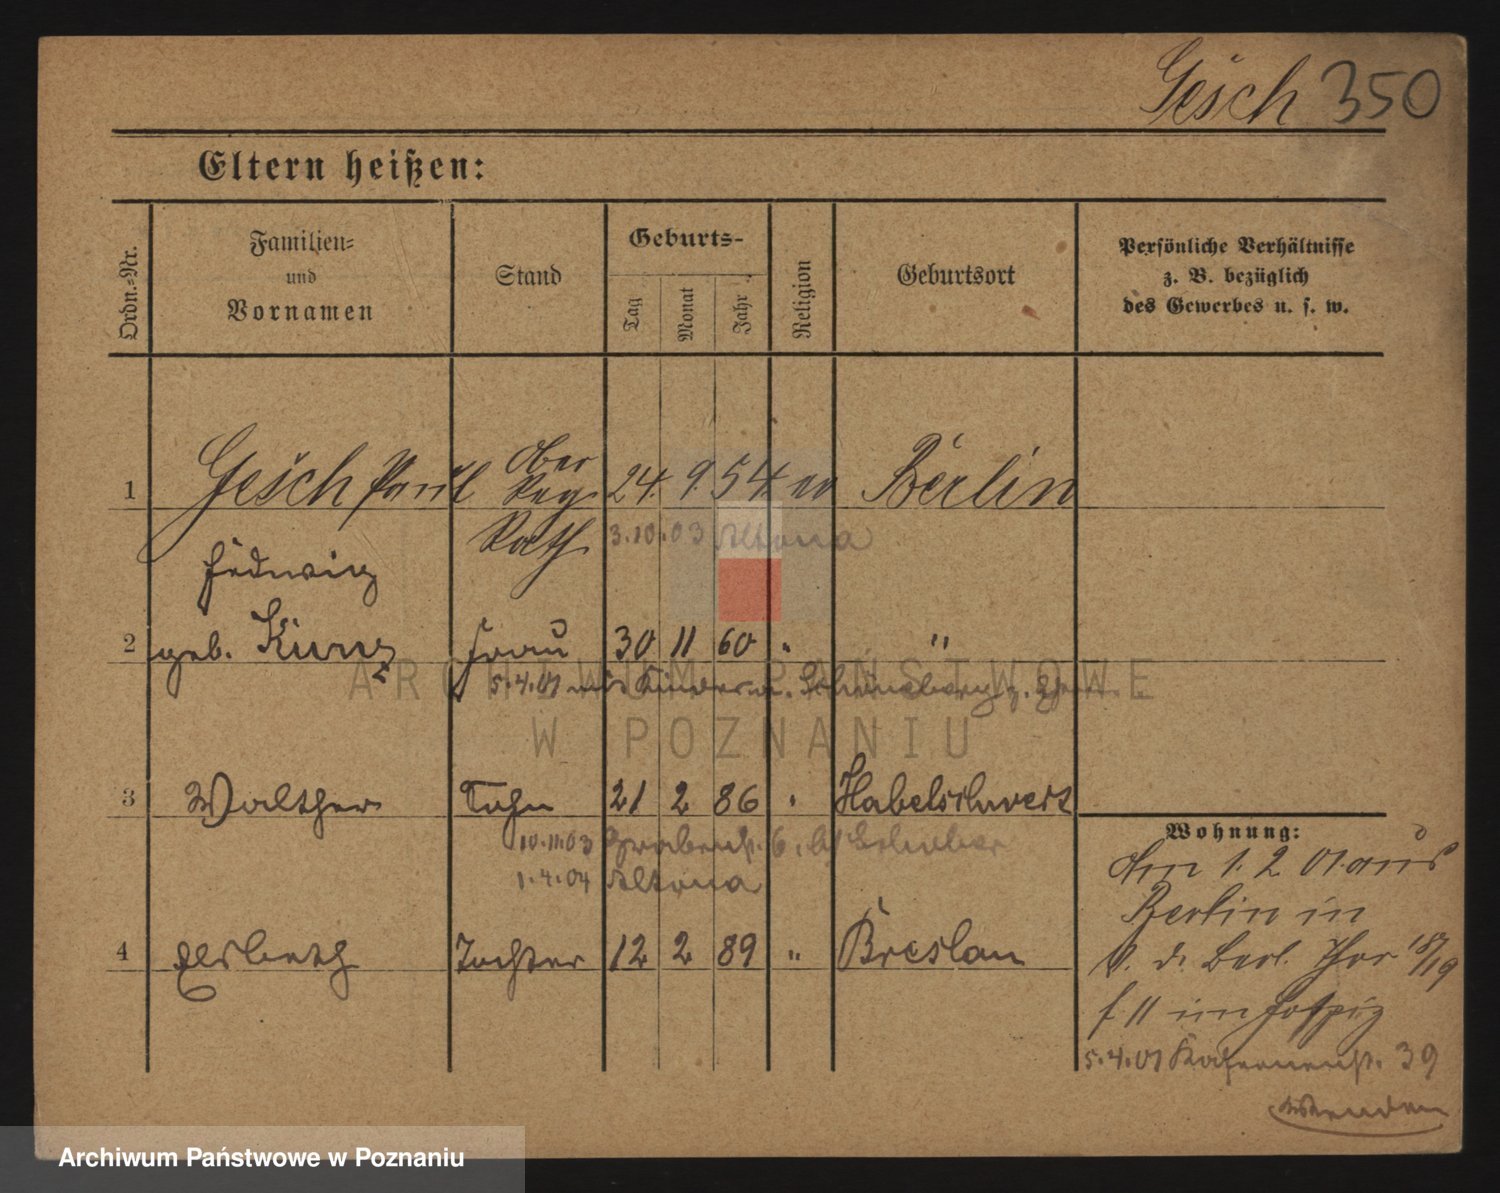 Gesch 350
Eltern heißen:
Ordn.-Nr.
Familien-
und
Vornamen
Stand
Geburts-
Tag
Monat
Jahr
Religion
Geburtsort
Persönliche Verhältnisse
z. B. bezüglich
des Gewerbes u. s. w.
1 Gesch Paul Ober Reg. Rath 24. 9. 54. ev Berlin
3.10.03 Altona
Hedwig
2 geb. Kunz Frau 30 11 60 " "
5.4.01 Kinder n. Schöneberg
3 Walther Sohn 21 2 86 " Habelschwert
10.11.03 Grabenst. 6
1.4.04 Altona
4 Elsbeth Tochter 12 2 89 " Breslau
Wohnung:
Am 1. 2 01. aus
Berlin in
v. d. Berl. Thor 18/19
f. 11 im Hospiz
5.4.01 Kasernenst. 39
Wenden
ARCHIWUM PAŃSTWOWE
W POZNANIU
Archiwum Państwowe w Poznaniu